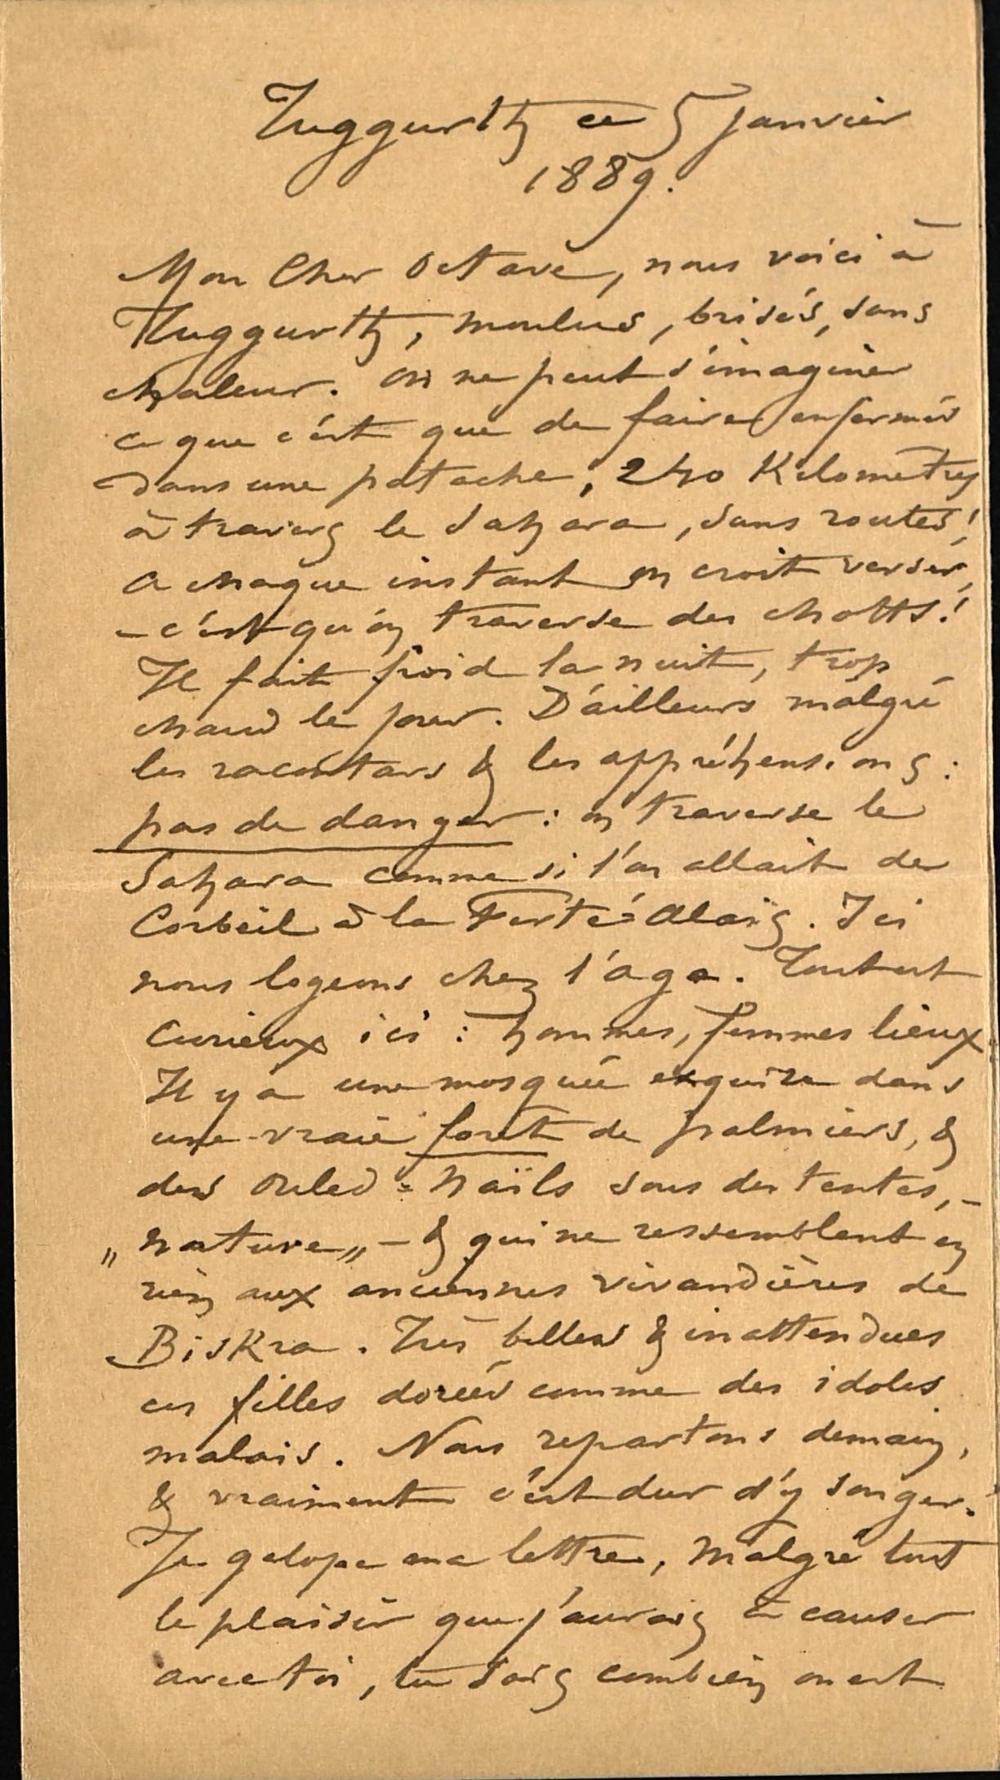 Tuggurth ce 5 Janvier
1889.
Mon Cher Octave, nous voici à
Tuggurth, moulus, brisés, sans
chaleur. On ne peut s'imaginer
ce que c'est que de faire enfermés
dans une patache, 240 Kilometres
à travers le Sahara, sans routes!
A chaque instant on croit verser,
– c'est qu'on traverse des chotts!
Il fait froid la nuit, trop
chaud le jour. D'ailleurs malgré
les racontars & les appréhensions :
pas de danger : on traverse le
Sahara comme si l'on allait de
Corbeil à la Ferté=Alais. Ici
nous logeons chez l'aga. Tout est
curieux ici : hommes, femmes lieux.
Il y a une mosquée exquise dans
une vraie foret de palmiers, &
des Ouled=Naïls sous des tentes, –
„nature„ – & qui ne ressemblent en
rien aux anciennes vivandières de
Biskra. Très belles & inattendues
ces filles dorées comme des idoles
malais. Nous repartons demain,
& vraiment c'est dur d'y songer.
Je galope ma lettre, malgré tout
le plaisir que j'aurais à causer
avec toi, tu sais combien on est